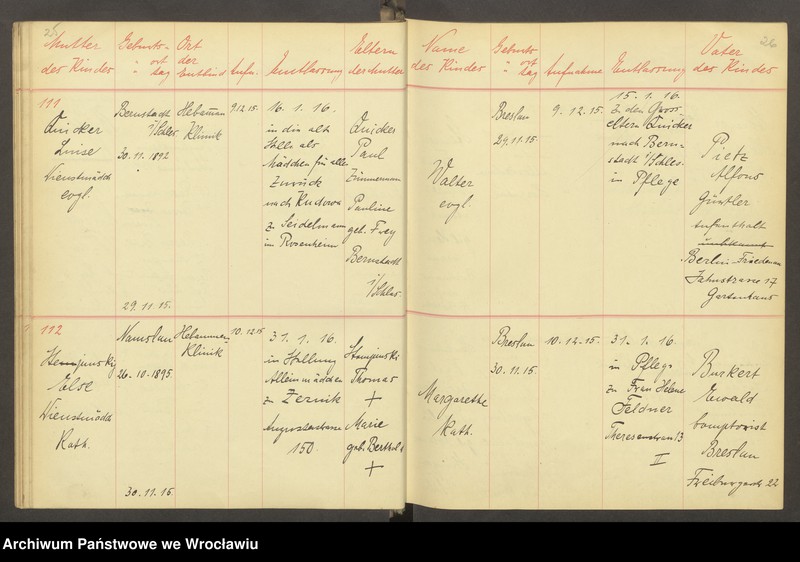 25
Mutter
der Kinder
Geburts-
= ort
tag
Ort
der
Entbind
Aufn.
Entlassung
Eltern
der Mutter
111
Quicker
Luise
Dienstmädch
evgl.
Bernstadt
i/Schles
30.11.1892
29.11.15.
Hebamm
Klinik
9.12.15.
16.1.16.
in die alte
Stelle als
Mädchen für alles
zurück
nach Kudowa
z. Seidelmann
im Rosenheim
Quicker
Paul
Zimmermann
Pauline
geb. Frey
Bernstadt
i/Schles.
112
Else
Dienstmädch
Kath.
Namslau
26.10.1895
30.11.15.
Hebammen
Klinik
10.12.15
31.1.16.
in Stellung
Alleinmädchen
z. Zernik
Augustastrasse
150.
Thomas
+
Marie
geb. Berthold
+
26
Name
der Kinder
Geburts
= ort
tag
Aufnahme
Entlassung
Vater
der Kinder
Walter
evgl.
Breslau
29.11.15.
9.12.15.
15.1.16.
z. den Gross-
eltern Quicker
nach Bern-
stadt i/Schles.
in Pflege
Pietz
Alfons
Günther
Aufenthalt
unbekannt
Berlin-Friedenau
Jahnstrasse 17
Gartenhaus
Margarethe
Kath.
Breslau
30.11.15.
10.12.15.
31.1.16.
in Pflege
zu Frau Helene
Feldner
Theresenstrasse 13
II
Burkert
Ewald
Comptorist
Breslau
Freiburgerstr 22
Archiwum Państwowe we Wrocławiu